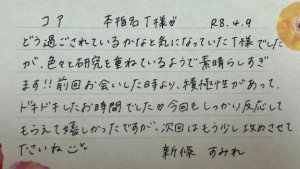 コア 本指名T様♡ R8.4.9
どう過ごされているかなと気になっていたT様でした
が、色々と研究を重ねているようで素晴らしすぎ
ます!! 前回お会いした時より、積極性があって、
ドキドキしたお時間でした♡今回もしっかり反応して
もらえて嬉しかったですが、次回はもう少し攻めさせて
くださいね
新條 すみれ